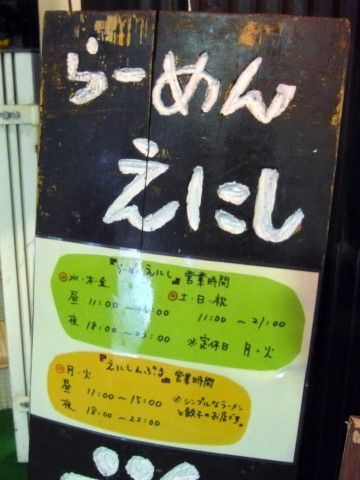 らーめん
えにし
『らーめんえにし』営業時間
水・木・金
土・日・祝
昼 11:00～
11:00～21:00
夜 18:00～23:00 ※定休日 月・火
『えにしんぷる』営業時間
月・火
昼 11:00～15:00 ※シンプルなラーメン
と餃子のお店です。
夜 18:00～22:00